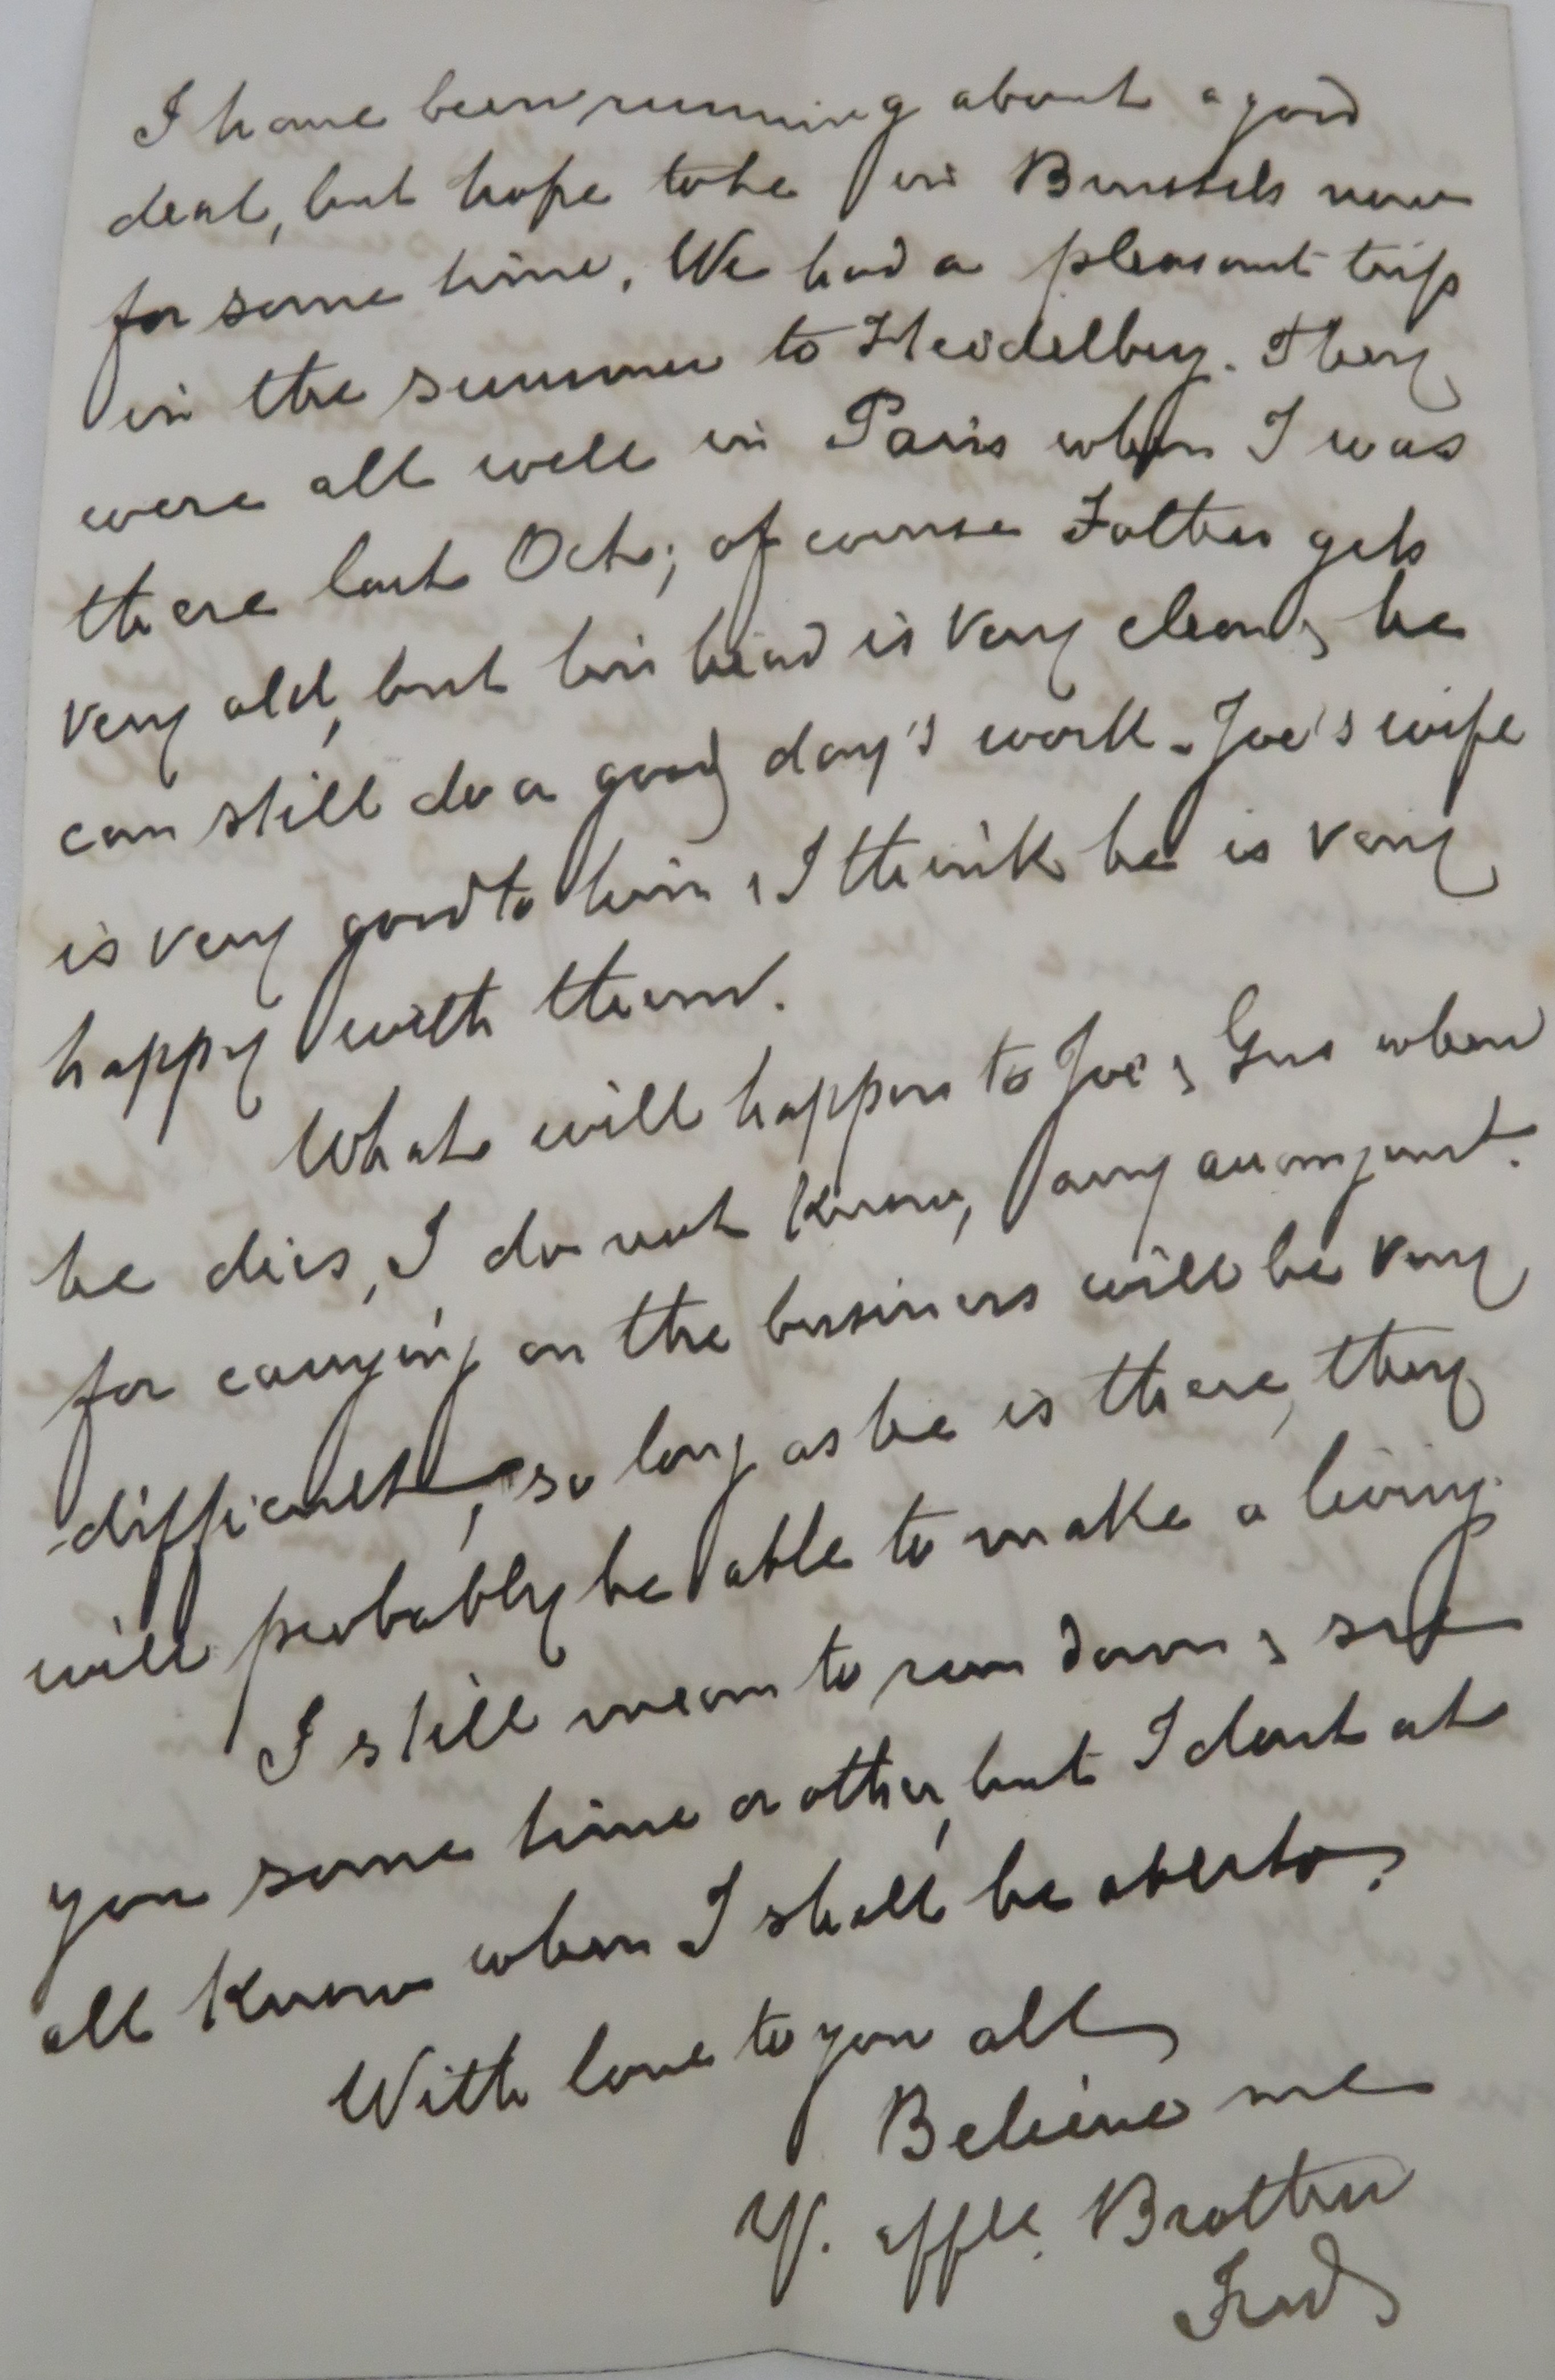 I have been running about a good
deal, but hope to be in Brussels now
for some time. We had a pleasant trip
in the summer to Heidelberg. They
were all well in Paris when I was
there last Oct; of course Father gets
very old, but his head is very clear & he
can still do a good day's work. Joe's wife
is very good to him & I think he is very
happy with them.
What will happen to Joe & Gus when
he dies, I do not know, any arrangmt.
for carrying on the business will be very
difficult, so long as he is there, they
will probably be able to make a living.
I still mean to run down & see
you some time or other, but I dont at
all know when I shall be able to.
With love to you all
Believe me
Yr. affte. Brother
Fred